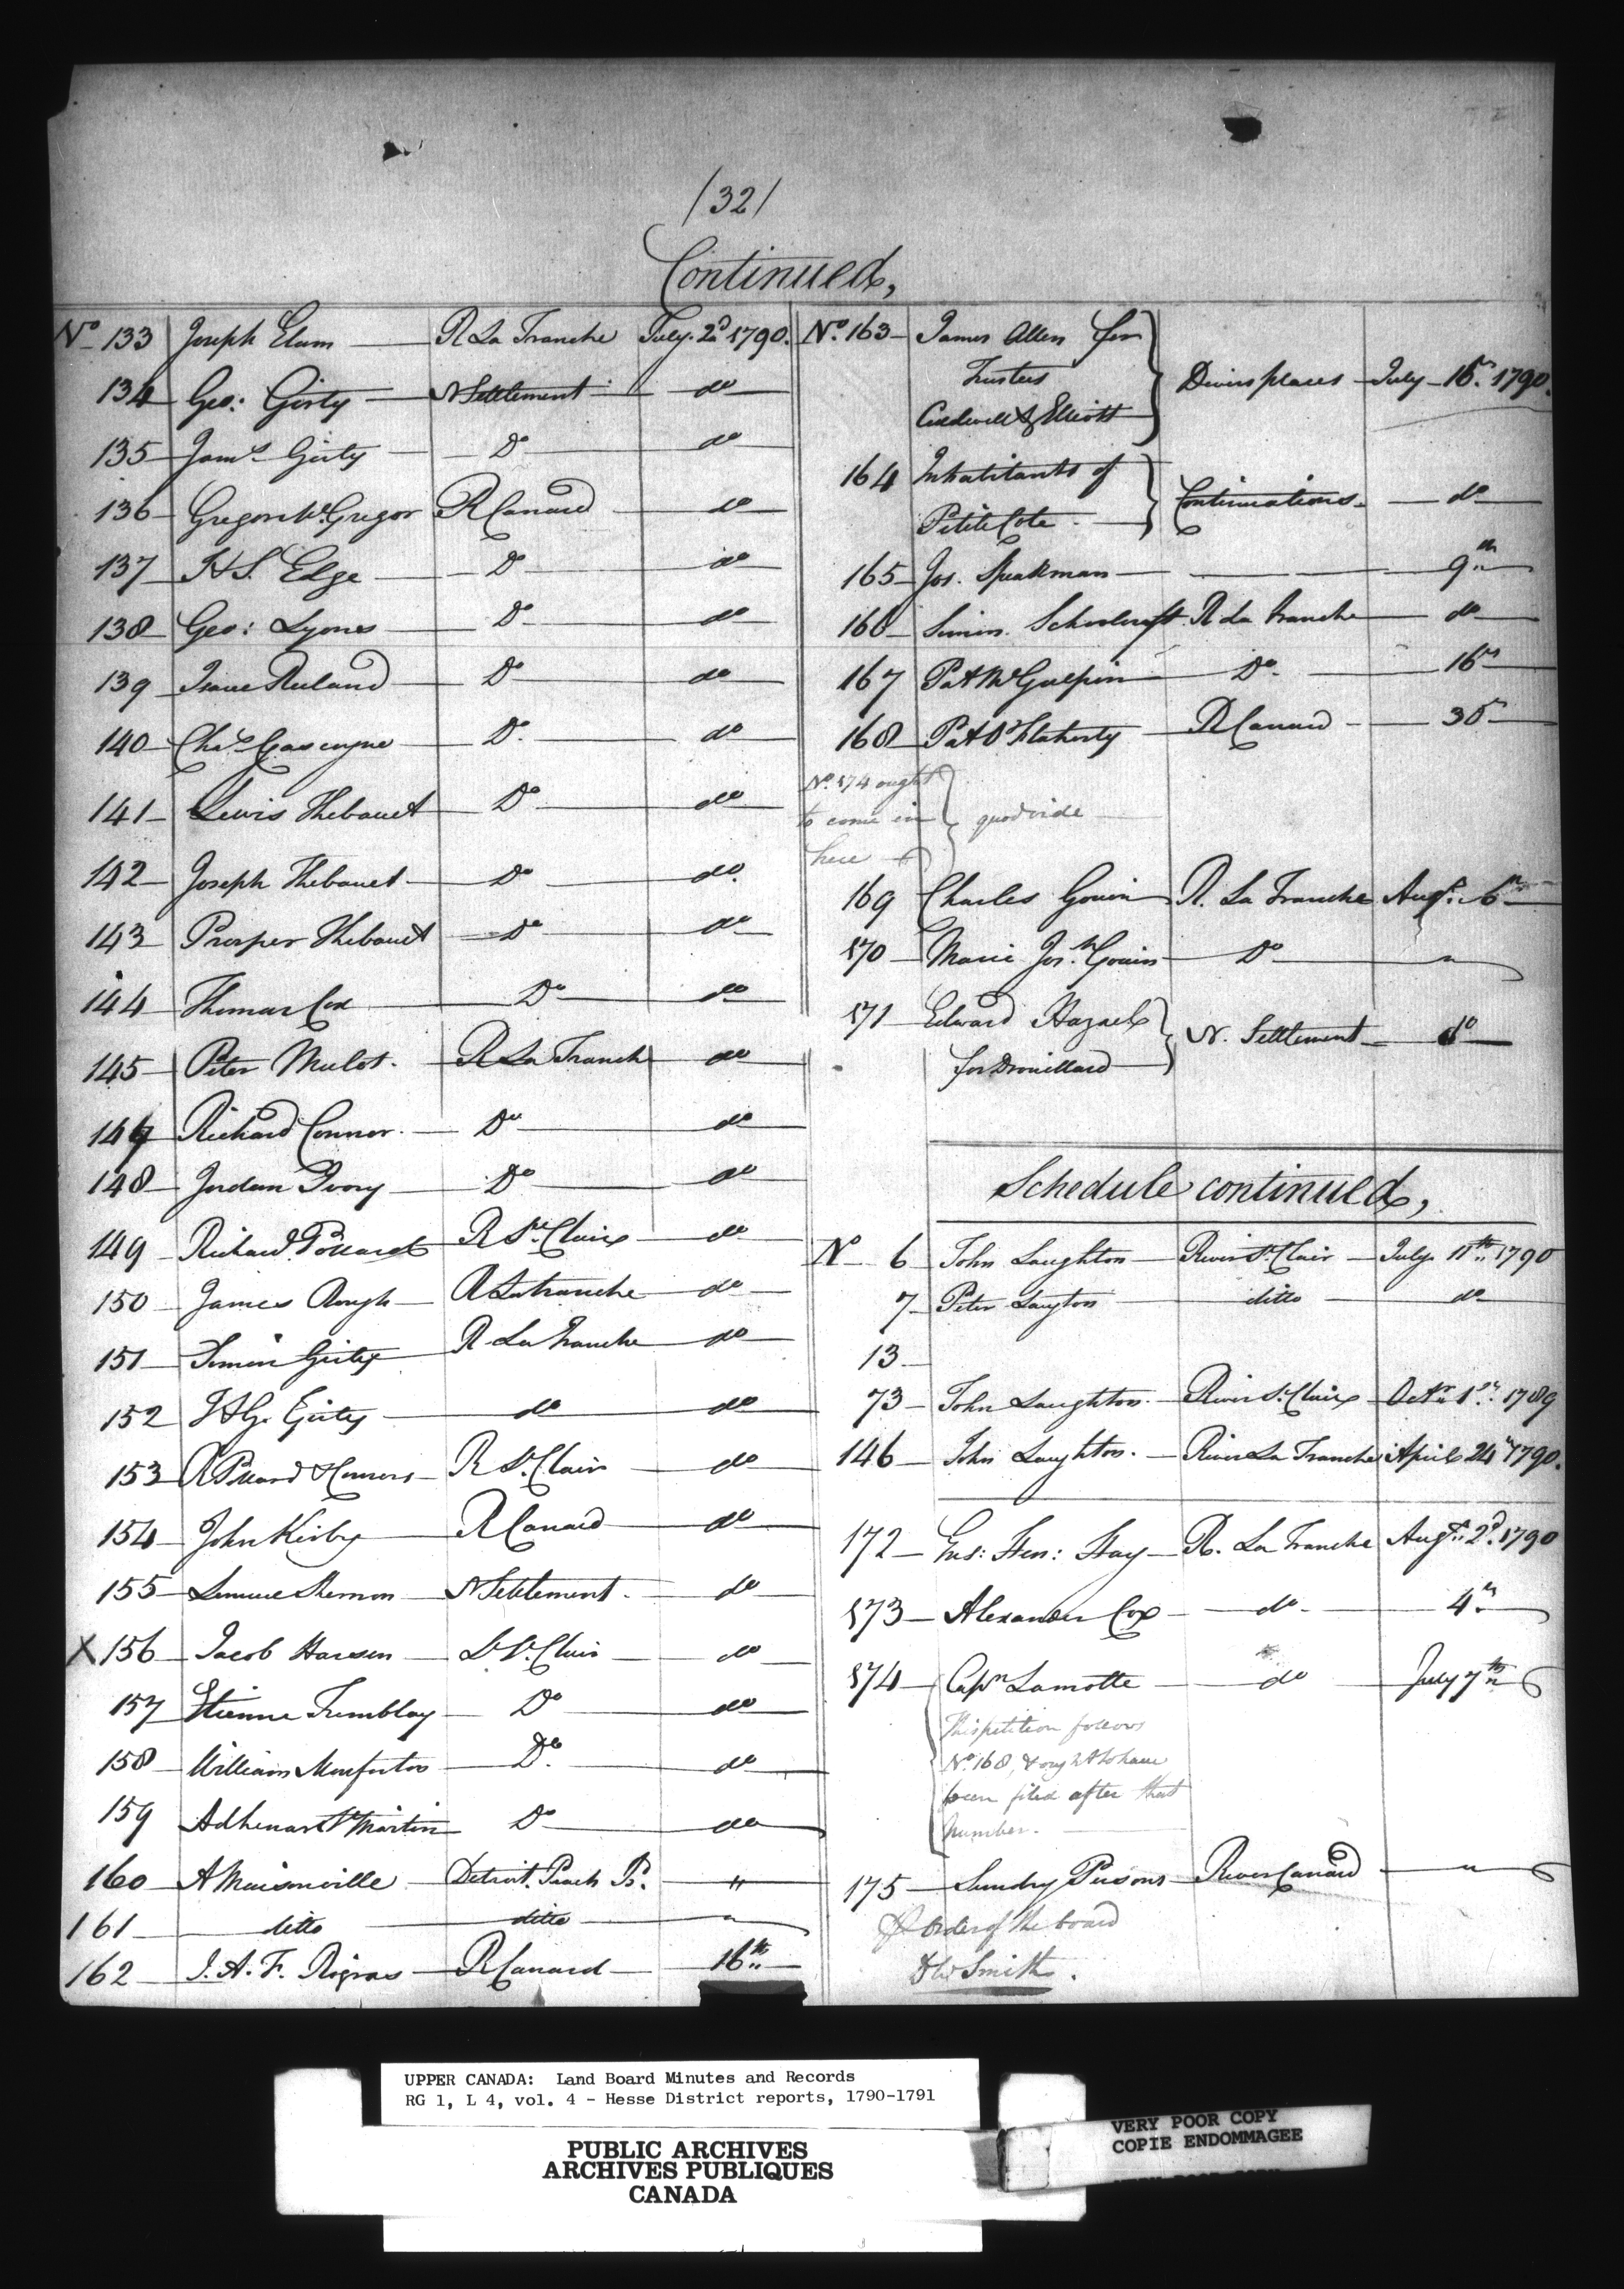 /32/
Continued,
No 133 Joseph Elam R La Tranche July 2d 1790.
134 Geo: Girty N Settlement do
135 Jams Girty Do do
136 Gregor McGregor R Canard do
137 H S. Edge Do do
138 Geo: Lyons Do do
139 Isaac Ruland Do do
140 Chas Gascoyne Do do
141 Lewis Thebauet Do do
142 Joseph Thebauet Do do.
143 Prosper Thebauet Do do
144 Thomas Cox Do do
145 Peter Mulot. R La Tranch do
147 Richard Connor. Do do
148 Jordan Ivory Do do
149 Richard Pollard R St Clair do
150 James Rough R Latranche do
151 Simon Girty R La Tranche do
152 Girty do do
153 R Pollard & Connors R St Clair do
154 John Kirby R Canard do
155 N Settlement. do
X 156 Jacob Harsen L St Clair do
157 Etienne Tremblay Do do
158 William Monforton Do. do
159 Adhemar St Martin Do do
160 A Maisonville Detroit. Peach B. "
161 ditto ditto "
162 J. A. F. R Canard 16th
No. 163 James Allen for
Trustees
Caldwell & Elliott
Divers places July 16th 1790.
164 Inhabitants of
Petite Cote.
Continuations. do
165 Jos. Speakman 9th
166 Simon Schoolcraft R La tranche do
167 Pat McGulpin Do. 16th
168 Pat O'Flaherty R Canard 30th
No. 174 ought
to come in
here
quod vide
169 Charles Gouin R. La Tranche Augt. 6th
170 Marie Josh Gouin Do "
171 Edward Hazael
for Drouillard
N. Settlement do
Schedule continued,
No 6 John Laughton River St Clair July 11th 1790
7 Peter Laughton ditto do
13
73 John Laughton. River St Clair Octr 1st 1789
146 John Laughton. River La Tranche April 24th 1790.
172 Hen: Hay R. La Tranche Augt. 2d. 1790
173 Alexander Cox do 4th
174 Capn Lamotte do July 7th
This petition follows
No. 168, & ought to have
been filed after that
number.
175 Sundry Persons River Canard "
By order of the board
D W Smith.
UPPER CANADA: Land Board Minutes and Records
RG 1, L 4, vol. 4 - Hesse District reports, 1790-1791
PUBLIC ARCHIVES
ARCHIVES PUBLIQUES
CANADA
VERY POOR COPY
COPIE ENDOMMAGEE